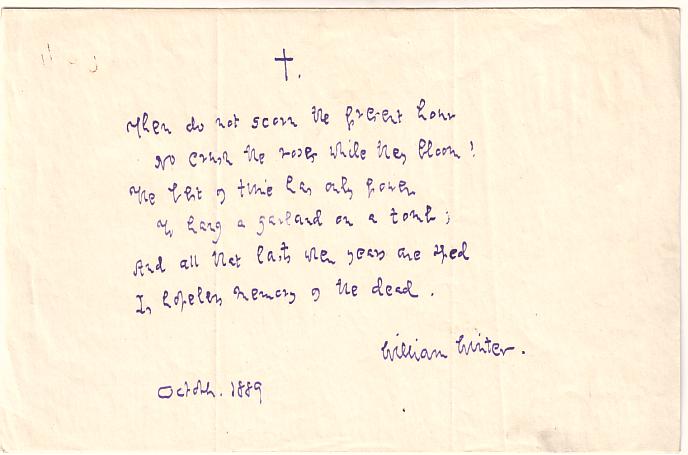 †.
Then do not scorn the present hour
No crush the roses while they bloom!
The best of time has only power
To hang a garland on a tomb;
And all that lasts when years are sped
Is hopeless memory of the dead.
William Winter.
Octobr. 1889